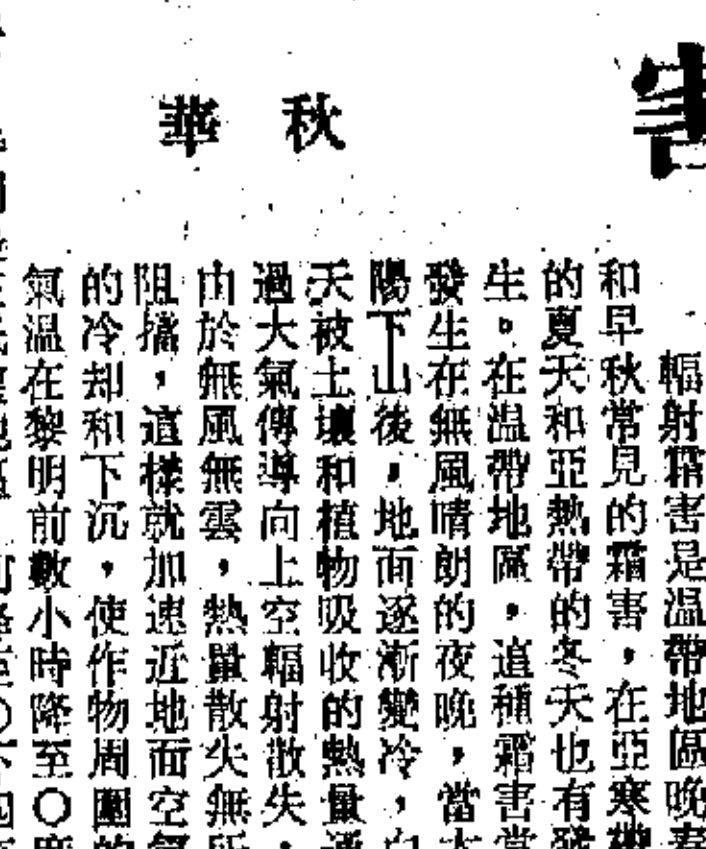 害
秋華
輻射霜害是温帶地區晚春
和早秋常見的霜害，在亞寒帶
的夏天和亞熱帶的冬天也有發
生。在温帶地區，這種霜害常
發生在無風晴朗的夜晚，當太
陽下山後，地面逐漸變冷，白
天被土壤和植物吸收的熱量通
過大氣傳導向上空輻射散失，
由於無風無雲，熱量散失無所
阻擋，這樣就加速近地面空氣
的冷却和下沉，使作物周圍的
氣温在黎明前數小時降至〇度